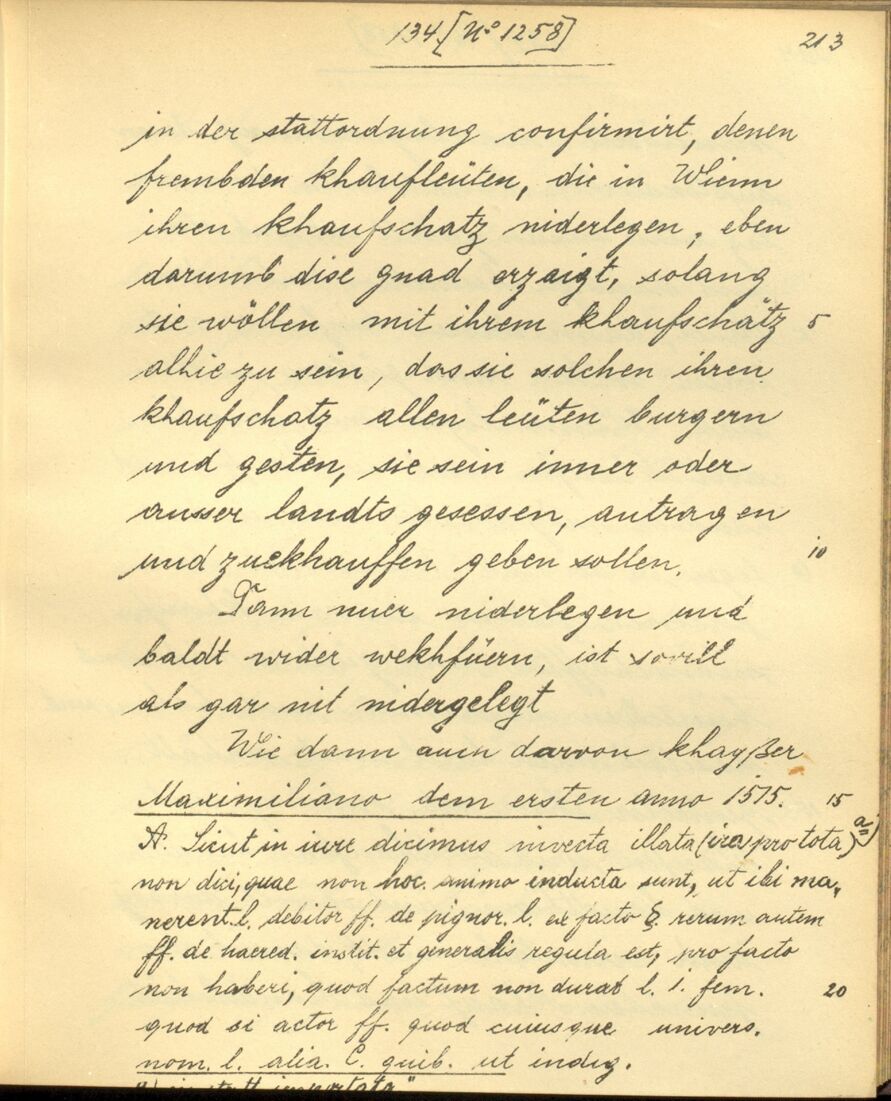 134. [No 1258]
213
in der stattordnung confirmirt, denen
frembden khaufleüten, die in Wienn
ihren khaufschatz niderlegen, eben
darumb dise gnad erzaigt, solang
sie wöllen mit ihrem khaufschätz 5
alhie zu sein, das sie solchen ihren
khaufschatz allen leüten burgern
und gesten, sie sein inner oder
ausser landts gesessen, antragen
und zuekhauffen geben sollen. 10
Dann nuer niderlegen und
baldt wider wekhfüern, ist sovill
als gar nit nidergelegt
Wie dann auch darvon khayßer
Maximiliano dem ersten anno 1515. 15
A. Sicut in iure dicimus invecta illata (ira pro tota) a)
non dici, quae non hoc. animo inducta sunt, ut ibi ma-
nerent. l. debitor ff. de pignor. l. ex facto §. rerum autem
ff. de haered. instit. et generalis regula est, pro facto
non haberi, quod factum non durat l. 1. fem. 20
quod si actor ff. quod cuiusque univers.
nom. l. alia. C. quib. ut indig.
importata"